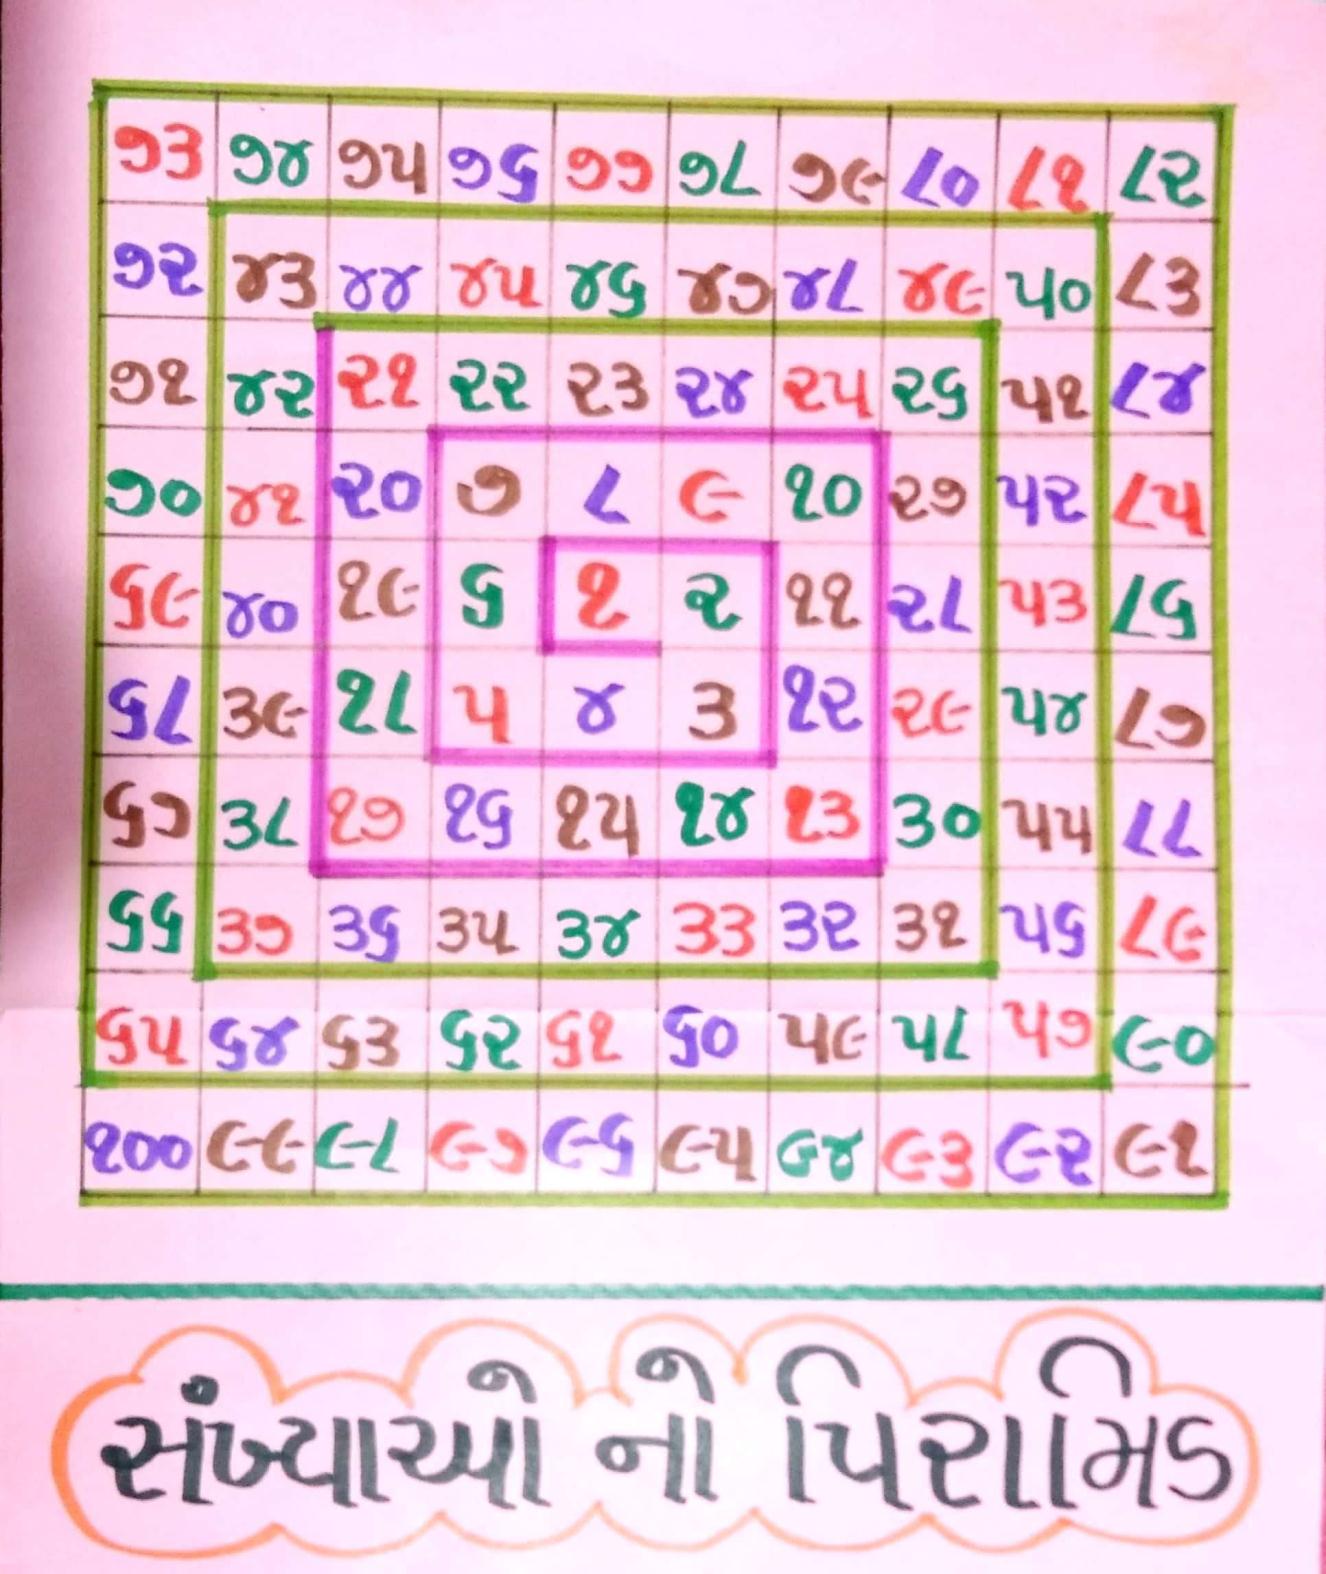 ૭૩ ૭૪ ૭૫ ૭૬ ૭૭ ૭૮ ૭૯ ૮૦ ૮૧ ૮૨
૭૨ ૪૩ ૪૪ ૪૫ ૪૬ ૪૭ ૪૮ ૪૯ ૫૦ ૮૩
૭૧ ૪૨ ૨૧ ૨૨ ૨૩ ૨૪ ૨૫ ૨૬ ૫૧ ૮૪
૭૦ ૪૧ ૨૦ ૭ ૮ ૯ ૧૦ ૨૭ ૫૨ ૮૫
૬૯ ૪૦ ૧૯ ૬ ૧ ૨ ૧૧ ૨૮ ૫૩ ૮૬
૬૮ ૩૯ ૧૮ ૫ ૪ ૩ ૧૨ ૨૯ ૫૪ ૮૭
૬૭ ૩૮ ૧૭ ૧૬ ૧૫ ૧૪ ૧૩ ૩૦ ૫૫ ૮૮
૬૬ ૩૭ ૩૬ ૩૫ ૩૪ ૩૩ ૩૨ ૩૧ ૫૬ ૮૯
૬૫ ૬૪ ૬૩ ૬૨ ૬૧ ૬૦ ૫૯ ૫૮ ૫૭ ૯૦
૧૦૦ ૯૯ ૯૮ ૯૭ ૯૬ ૯૫ ૯૪ ૯૩ ૯૨ ૯૧
સંખ્યાઓ નો પિરામિડ